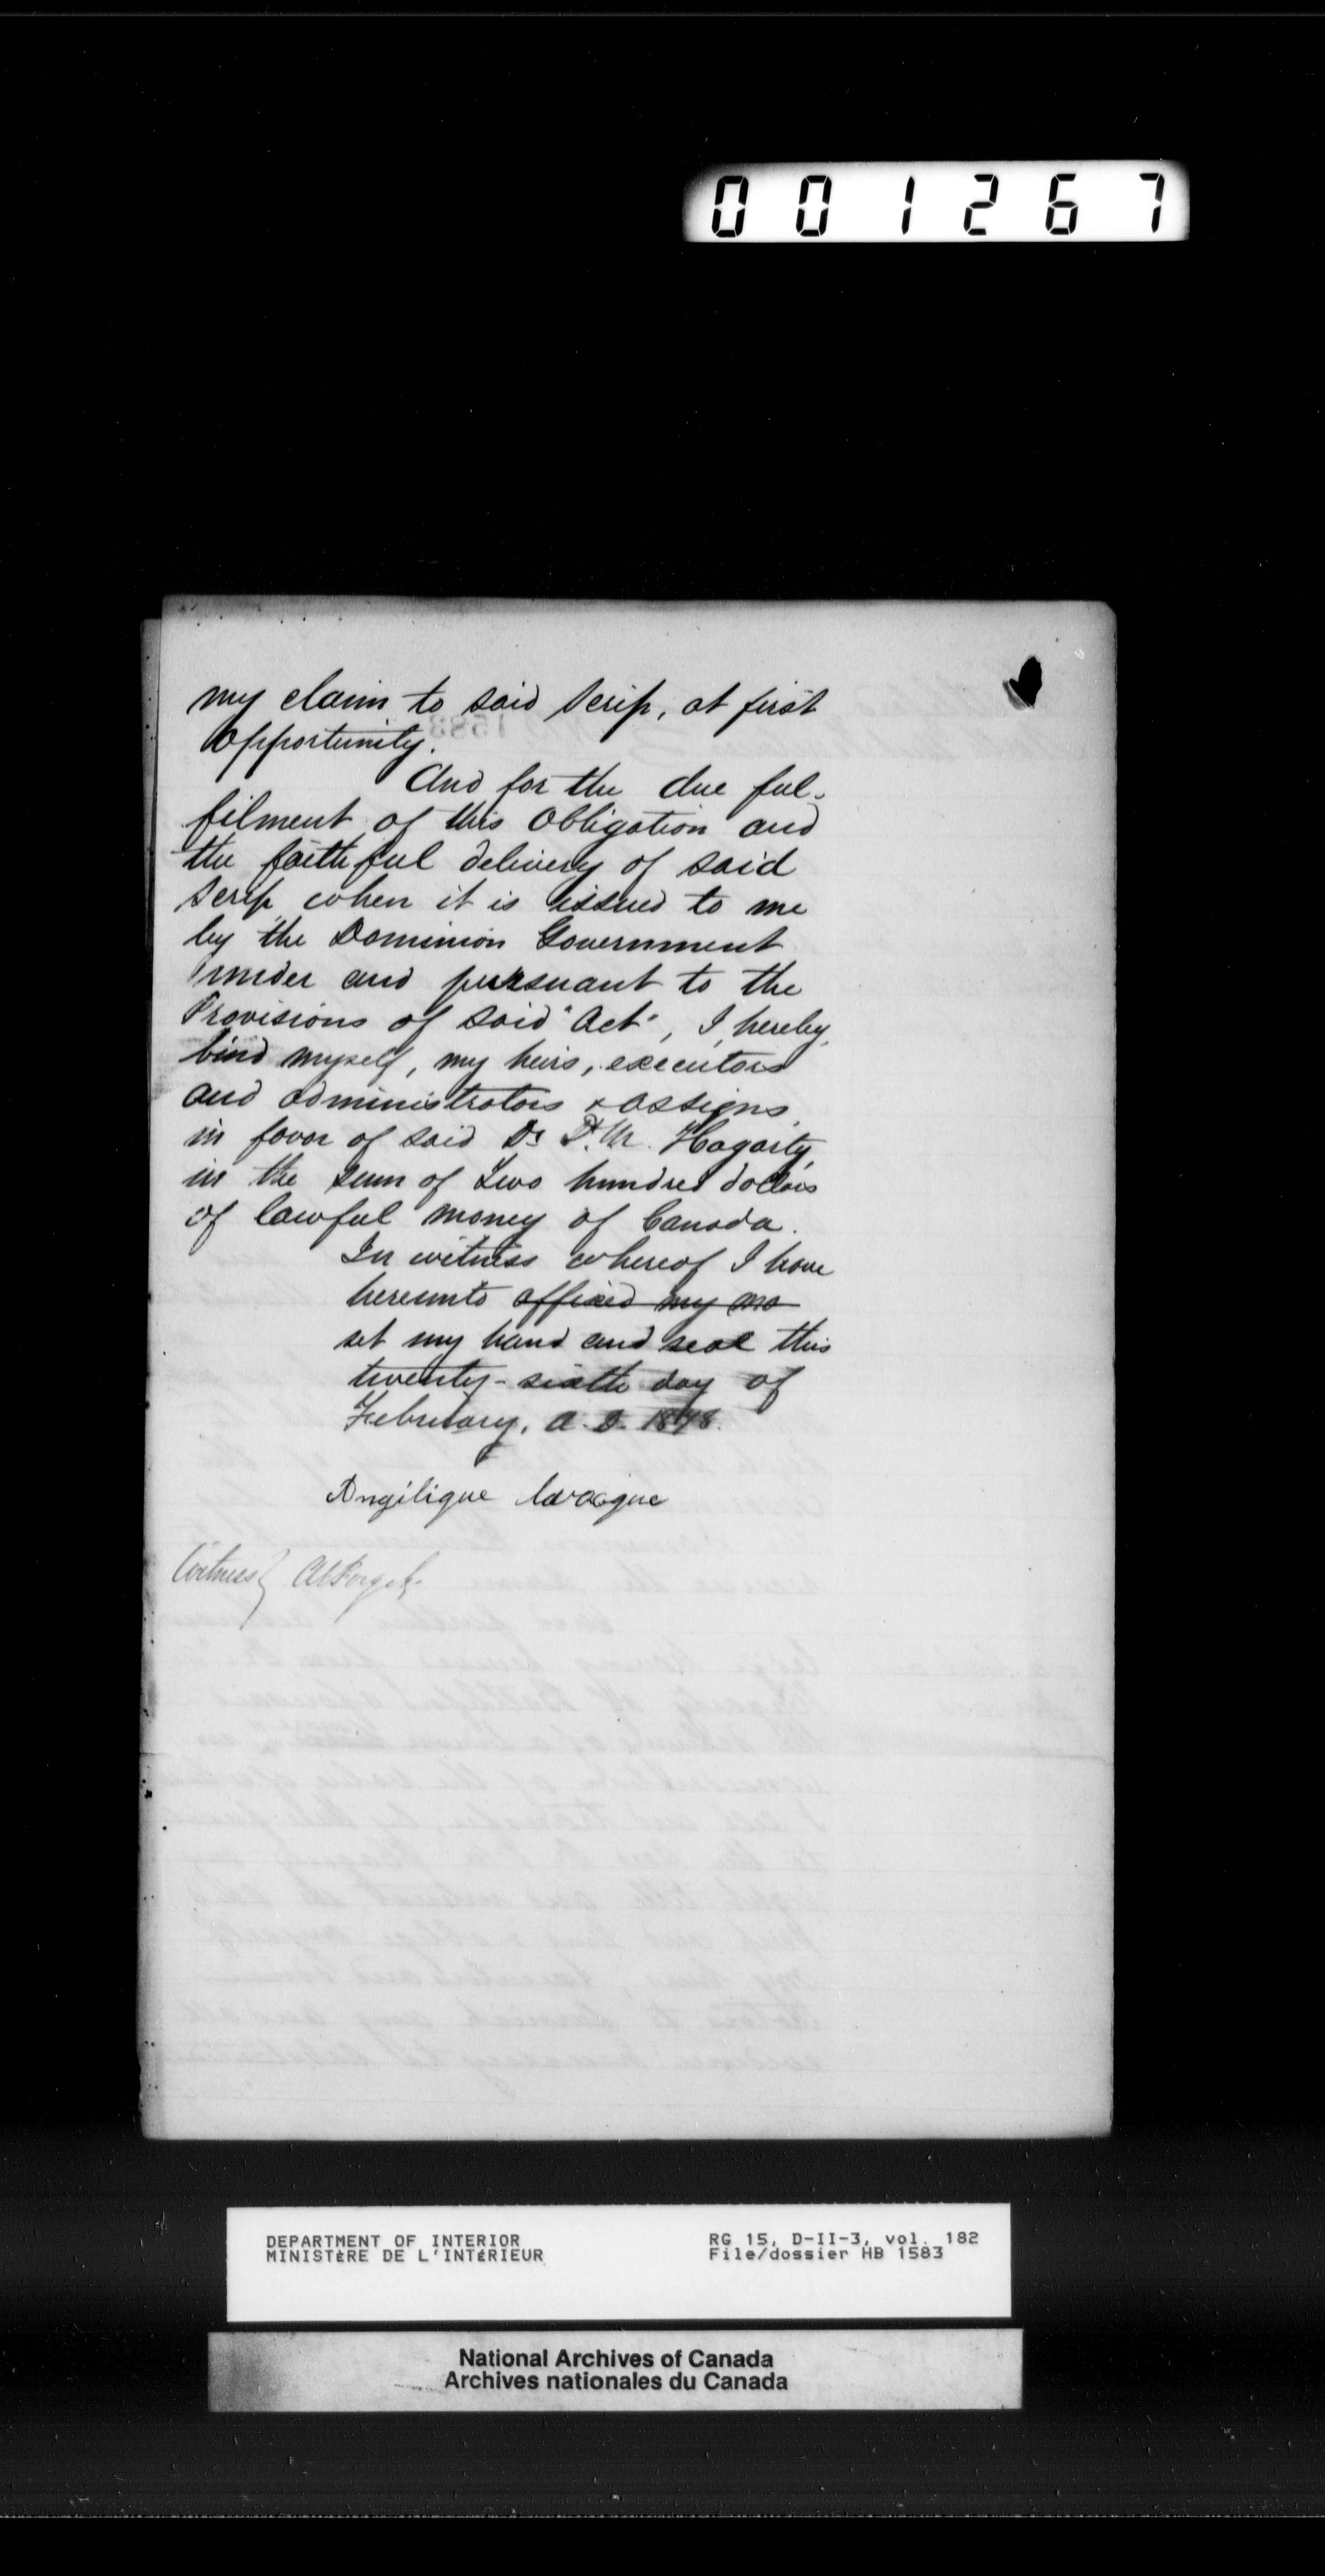 001267
my claim to said scrip, at first
opportunity.
And for the due ful-
filment of this Obligation and
the faithful delivery of said
scrip when it is issued to me
by the Dominion Government
under and pursuant to the
Provisions of said "Act", I hereby
bind myself, my heirs, executors
and administrators & assigns
in favor of said Dr. Hagarty,
in the sum of Two hundred dollars
of lawful money of Canada.
In witness whereof I have
hereunto affixed my ma
set my hand and seal this
twenty-sixth day of
February, A.D. 1878.
Angilique
Witness Forget
DEPARTMENT OF INTERIOR
MINISTÈRE DE L'INTÉRIEUR
RG 15, D-II-3, vol. 182
File/dossier HB 1583
National Archives of Canada
Archives nationales du Canada